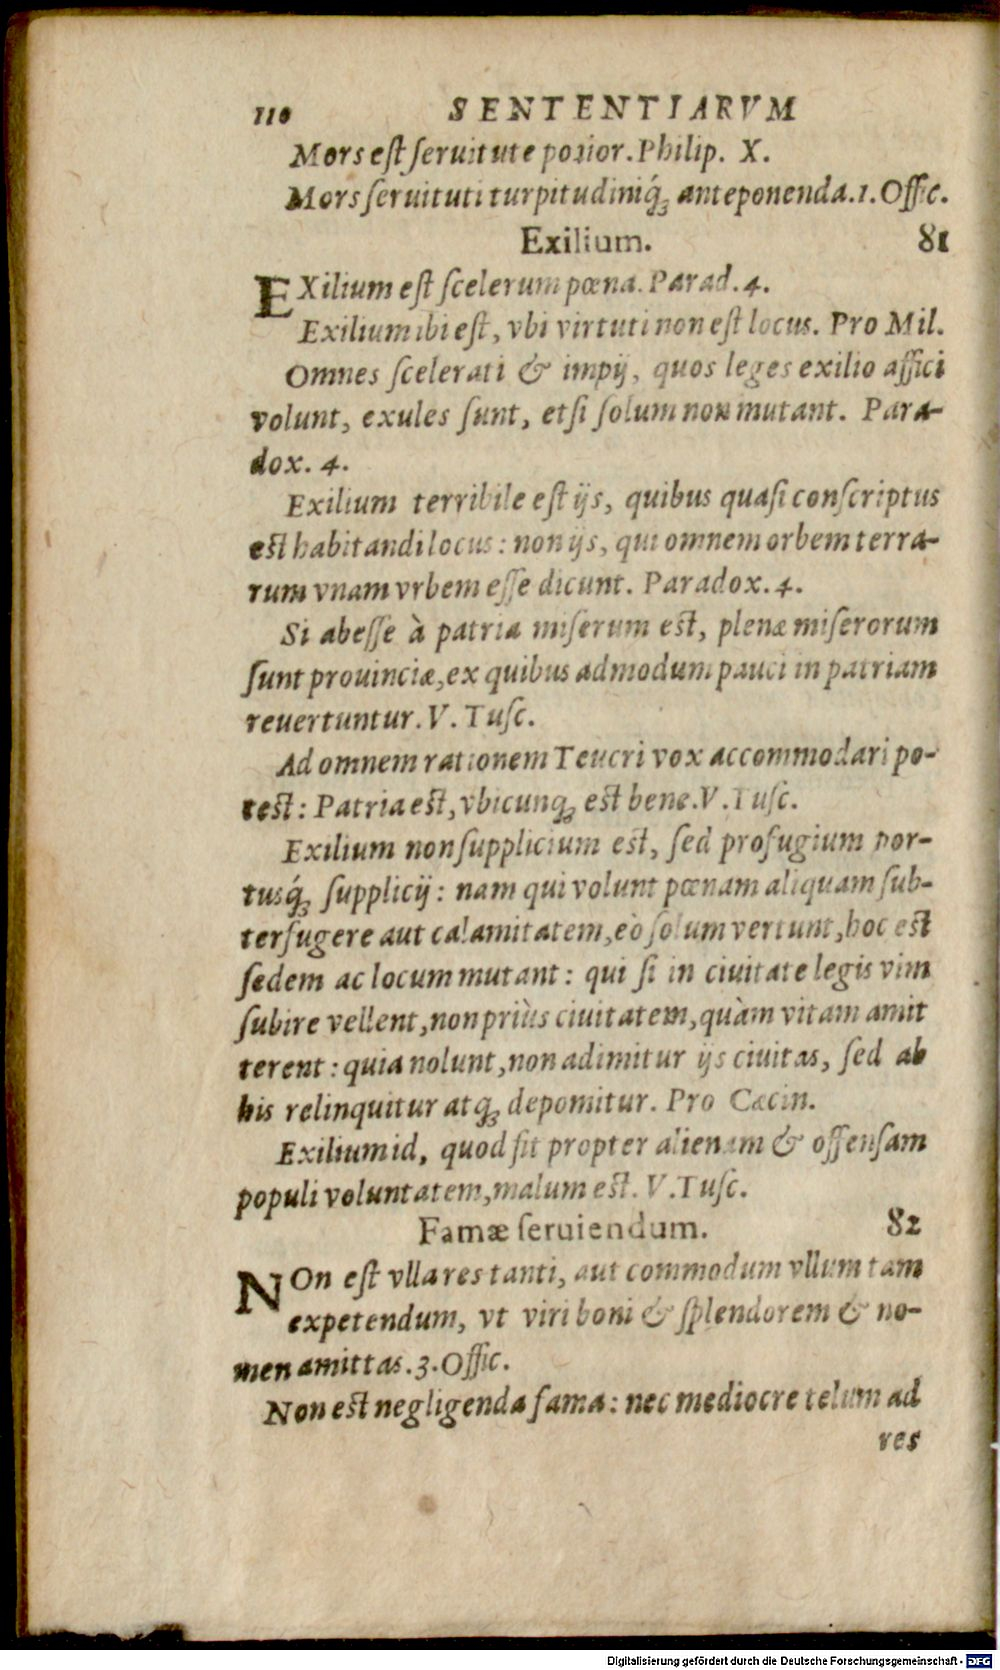 110 SENTENTIARVM
Mors est ſeruitute potior. Philip. X.
Mors ſeruituti turpitudiniq́ꝫ anteponenda. 1. Offic.
Exilium. 81
EXilium est ſcelerum pœna. Parad. 4.
Exilium ibi est, vbi virtuti non est locus. Pro Mil.
Omnes ſcelerati & impij, quos leges exilio affici
volunt, exules ſunt, etſi ſolum non mutant. Para-
dox. 4.
Exilium terribile est ijs, quibus quaſi conſcriptus
est habitandi locus: non ijs, qui omnem orbem terra-
rum vnam vrbem eſſe dicunt. Paradox. 4.
Si abeſſe à patria miſerum est, plenæ miſerorum
ſunt prouinciæ, ex quibus admodum pauci in patriam
reuertuntur. V. Tuſc.
Ad omnem rationem Teucri vox accommodari po-
test: Patria est, vbicunqꝫ est bene. V. Tuſc.
Exilium non ſupplicium est, ſed profugium por-
tusq́ꝫ ſupplicij: nam qui volunt pœnam aliquam ſub-
terfugere aut calamitatem, eò ſolum vertunt, hoc est
ſedem ac locum mutant: qui ſi in ciuitate legis vim
ſubire vellent, non priùs ciuitatem, quàm vitam amit
terent: quia nolunt, non adimitur ijs ciuitas, ſed ab
his relinquitur atqꝫ deponitur. Pro Cæcin.
Exilium id, quod ſit propter alienam & offenſam
populi voluntatem, malum est. V. Tuſc.
Famæ ſeruiendum. 82
NOn est vlla res tanti, aut commodum vllum tam
expetendum, vt viri boni & ſplendorem & no-
men amittas. 3. Offic.
Non est negligenda fama: nec mediocre telum ad
res
Digitalisierung gefördert durch die Deutsche Forschungsgemeinschaft - DFG